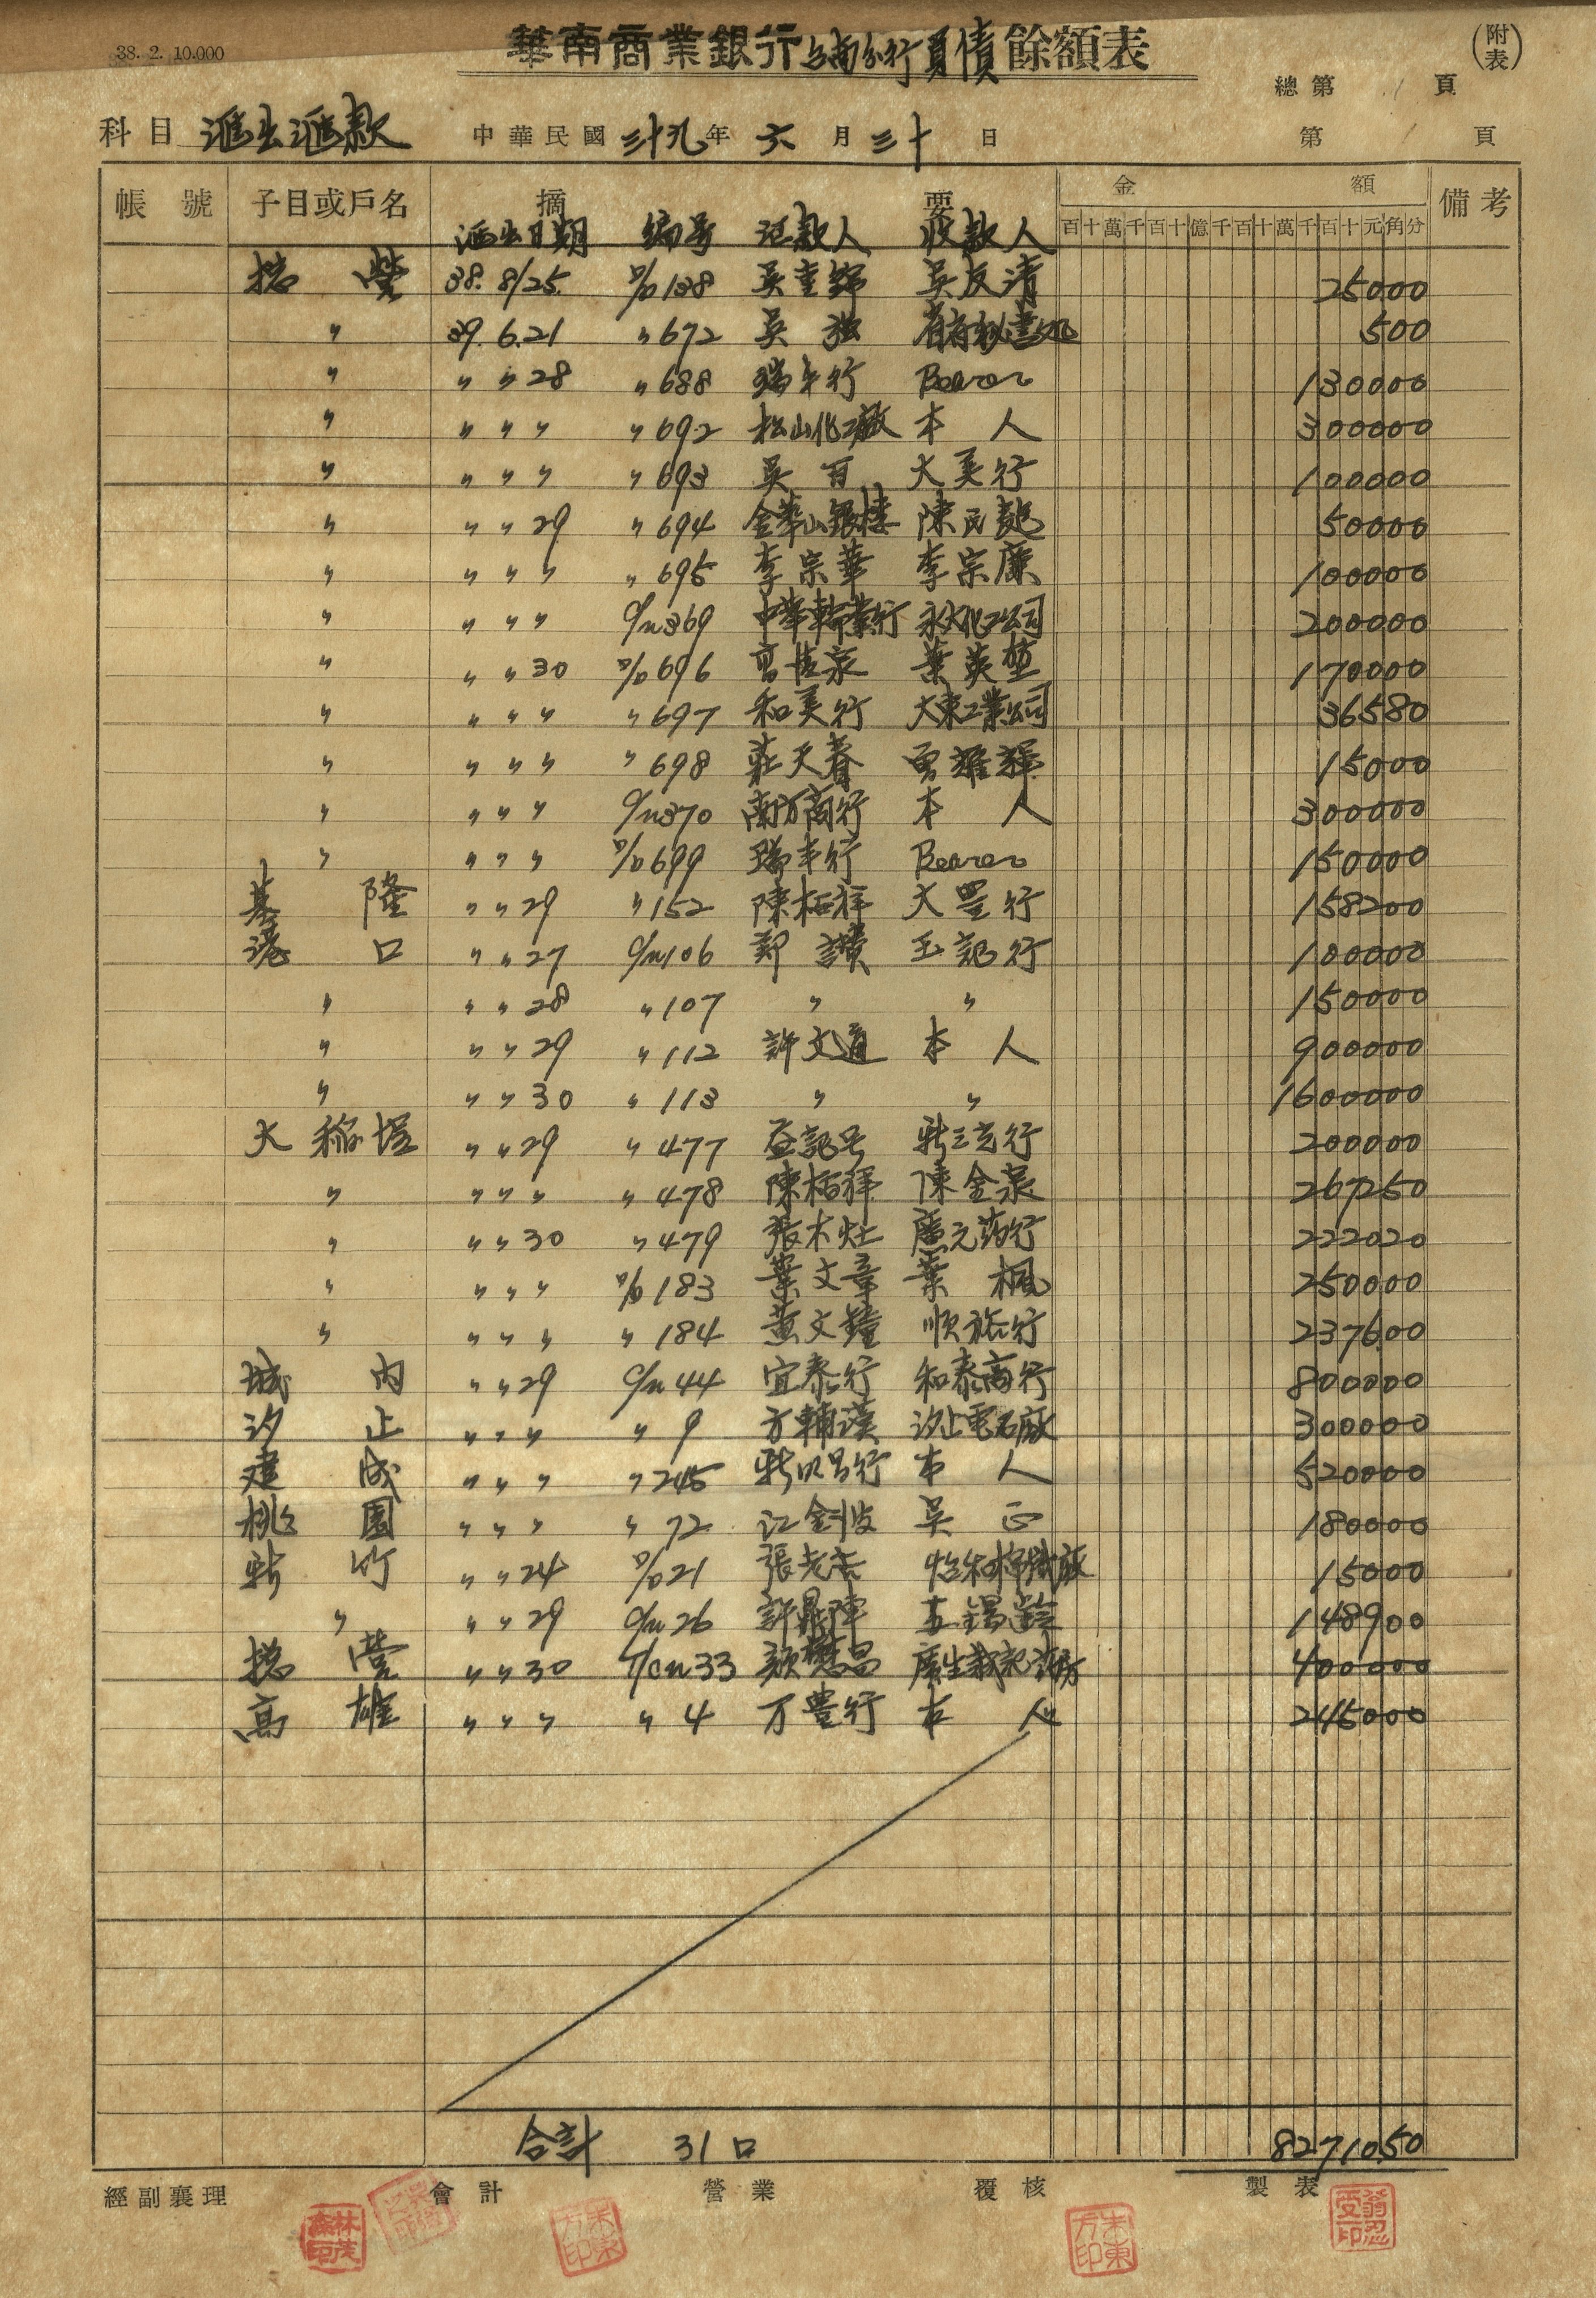 38. 2. 10.000
華南商業銀行台南分行負債餘額表
(附表)
總第 1 頁
科目 滙出滙款 中華民國 三十九 年 六 月 三十 日 第 1 頁
帳號 子目或戶名 摘要 金額 備考
滙出日期 編号 滙款人 收款人 百十萬千百十億千百十萬千百十元角分
總營 38. 8/25. D/D 138 吳 吳友清 25000
〃 39. 6.21 〃 672 吳強 省府秘書処 500
〃 〃 〃 28 〃 688 瑞丰行 Bearer 130000
〃 〃 〃 〃 〃 692 松山化工廠 本人 300000
〃 〃 〃 〃 〃 693 吳百 大美行 100000
〃 〃 〃 29 〃 694 金華山銀樓 陳民 50000
〃 〃 〃 〃 〃 695 李宗華 李宗廉 100000
〃 〃 〃 〃 C/N 369 中華輪業行 永大化工公司 200000
〃 〃 〃 30 D/D 696 葉英 170000
〃 〃 〃 〃 〃 697 和美行 大東工業公司 36580
〃 〃 〃 〃 〃 698 莊天春 15000
〃 〃 〃 〃 C/N 370 南方商行 本人 300000
〃 〃 〃 〃 D/D 699 瑞丰行 Bearer 150000
基隆 〃 〃 29 〃 152 陳栢祥 大豐行 158200
港口 〃 〃 27 C/N 106 鄭讚 玉記行 100000
〃 〃 〃 28 〃 107 〃 〃 150000
〃 〃 〃 29 〃 112 許文通 本人 900000
〃 〃 〃 30 〃 113 〃 〃 1600000
大稻埕 〃 〃 29 〃 477 益記号 新三吉行 200000
〃 〃 〃 〃 〃 478 陳栢祥 陳金泉 267250
〃 〃 〃 30 〃 479 張木灶 廣元药行 222020
〃 〃 〃 〃 D/D 183 葉文章 葉楓 250000
〃 〃 〃 〃 〃 184 黃文鐘 順裕行 237600
城內 〃 〃 29 C/N 44 宜泰行 和泰商行 800000
汐止 〃 〃 〃 〃 9 方輔漢 汐止電石廠 300000
建成 〃 〃 〃 〃 245 新以昌行 本人 520000
桃園 〃 〃 〃 〃 72 江金波 吳正 180000
新竹 〃 〃 24 D/D 21 張老 怡和棉織廠 15000
〃 〃 〃 29 C/N 26 許 148900
總營 〃 〃 30 T/CN 33 顏懋昌 廣生義記药房 400000
高雄 〃 〃 〃 〃 4 万豊行 本人 245000
合計 31口 8271050
經副襄理 會計 營業 覆核 製表
林茂
朱東方印
朱東方印
翁忍受印